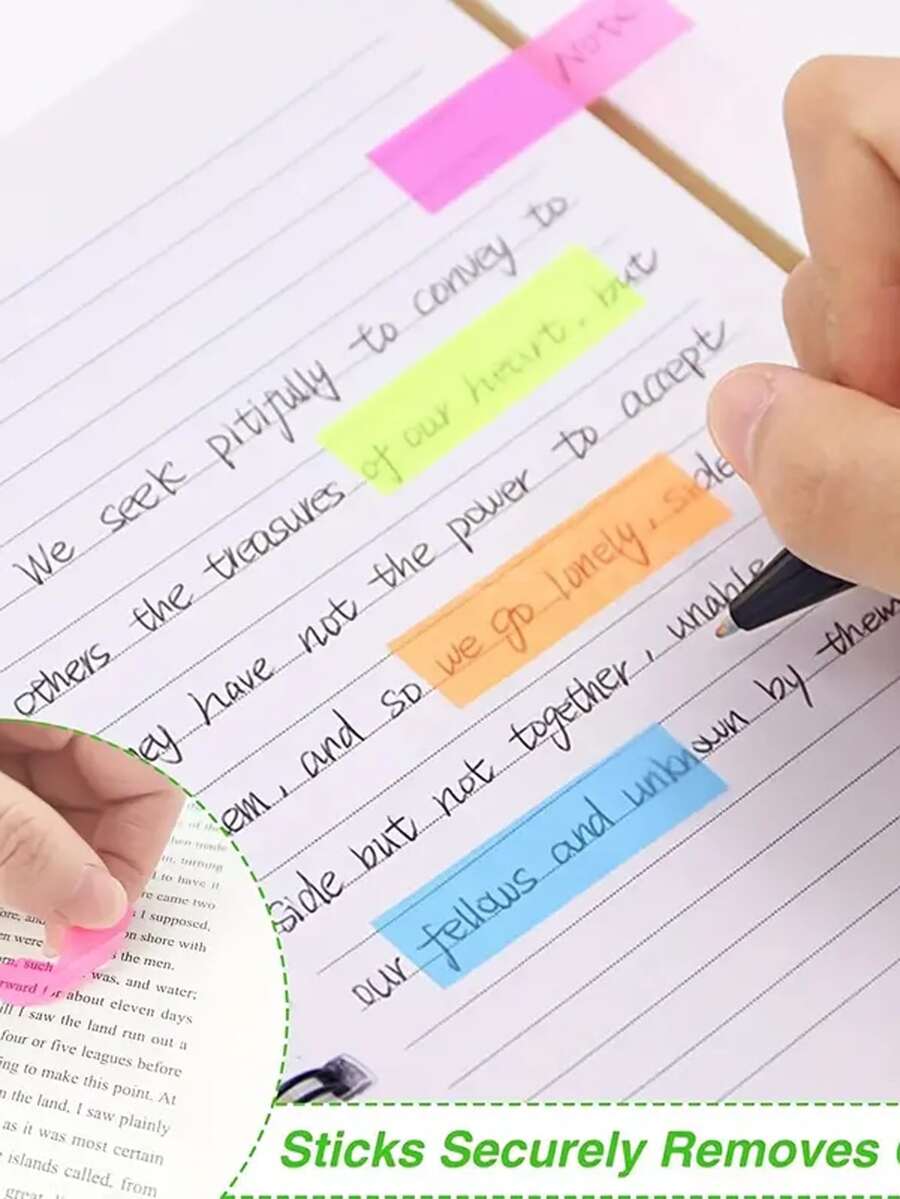 Note
We seek pitifully to convey to
others the treasures of our heart, but
ey have not the power to accept
em, and so we go lonely, side
side but not together, unable
our fellows and unknown by them
of the
hen made
m, turning
to have it
re came two
ore, and s I supposed,
en were on shore with
orn, such the men.
was, and water;
rward for about eleven days
ill I saw the land run out a
four or five leagues before
ing to make this point. At
n the land, I saw plainly
as it was most certain
e islands called, from
great
Sticks Securely Removes